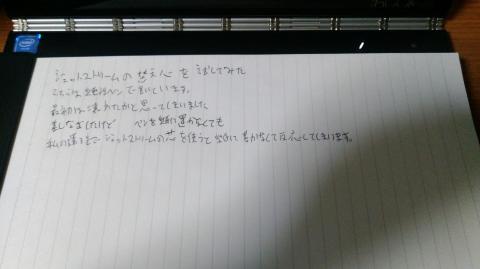 ジェットストリームの替え芯を試してみた
こちらは純正ペンで書いています。
最初は壊れたかと思ってしまいました
ペンを紙に置かなくても
ジェットストリームの芯を使うと 書かなくて反応してしまいます。